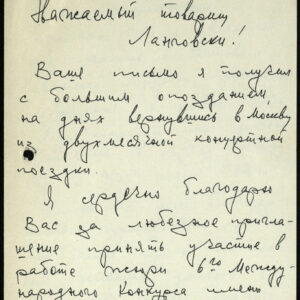 Уважаемый товарищ
Ланговски!
Ваше письмо я получил
с большим опозданием,
на днях вернувшись в Москву
из двухмесячной концертной
поездки.
Я сердечно благодарю
Вас за любезное пригла-
шение принять участие в
работе жюри 6го Между-
народного Конкурса имени